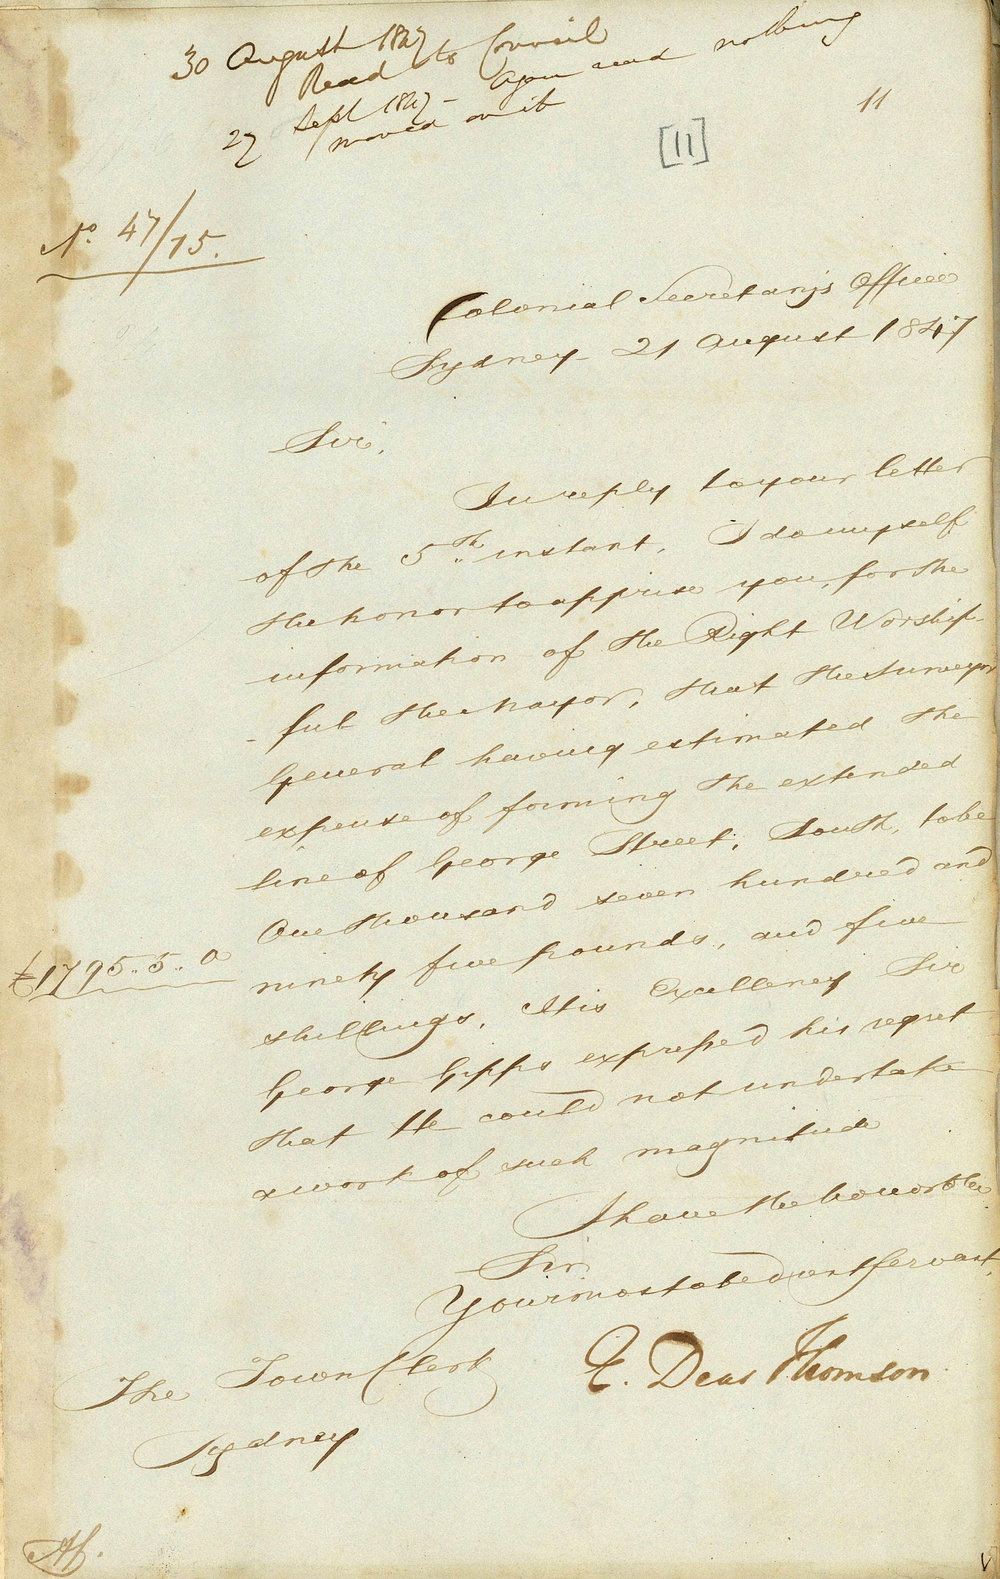 30 August 1847
Read to Council
27 Sept 1847 - again read nothing
moved on it
11
[11]
No. 47/75.
Colonial Secretary's Office
Sydney 21 August 1847
Sir,
In reply to your letter
of the 5th instant, I do myself
the honor to apprise you, for the
information of the Right Worship-
-ful the Mayor, that the Surveyor
General having estimated the
expense of forming the extended
line of George Street, South, to be
One thousand seven hundred and
£1795..5..0
ninety five pounds, and five
shillings, His Excellency Sir
George Gipps expressed his regret
that He could not undertake
a work of such magnitude
I have the honor to be
Sir
Your most obedient Servant,
E. Deas Thomson
The Town Clerk
Sydney